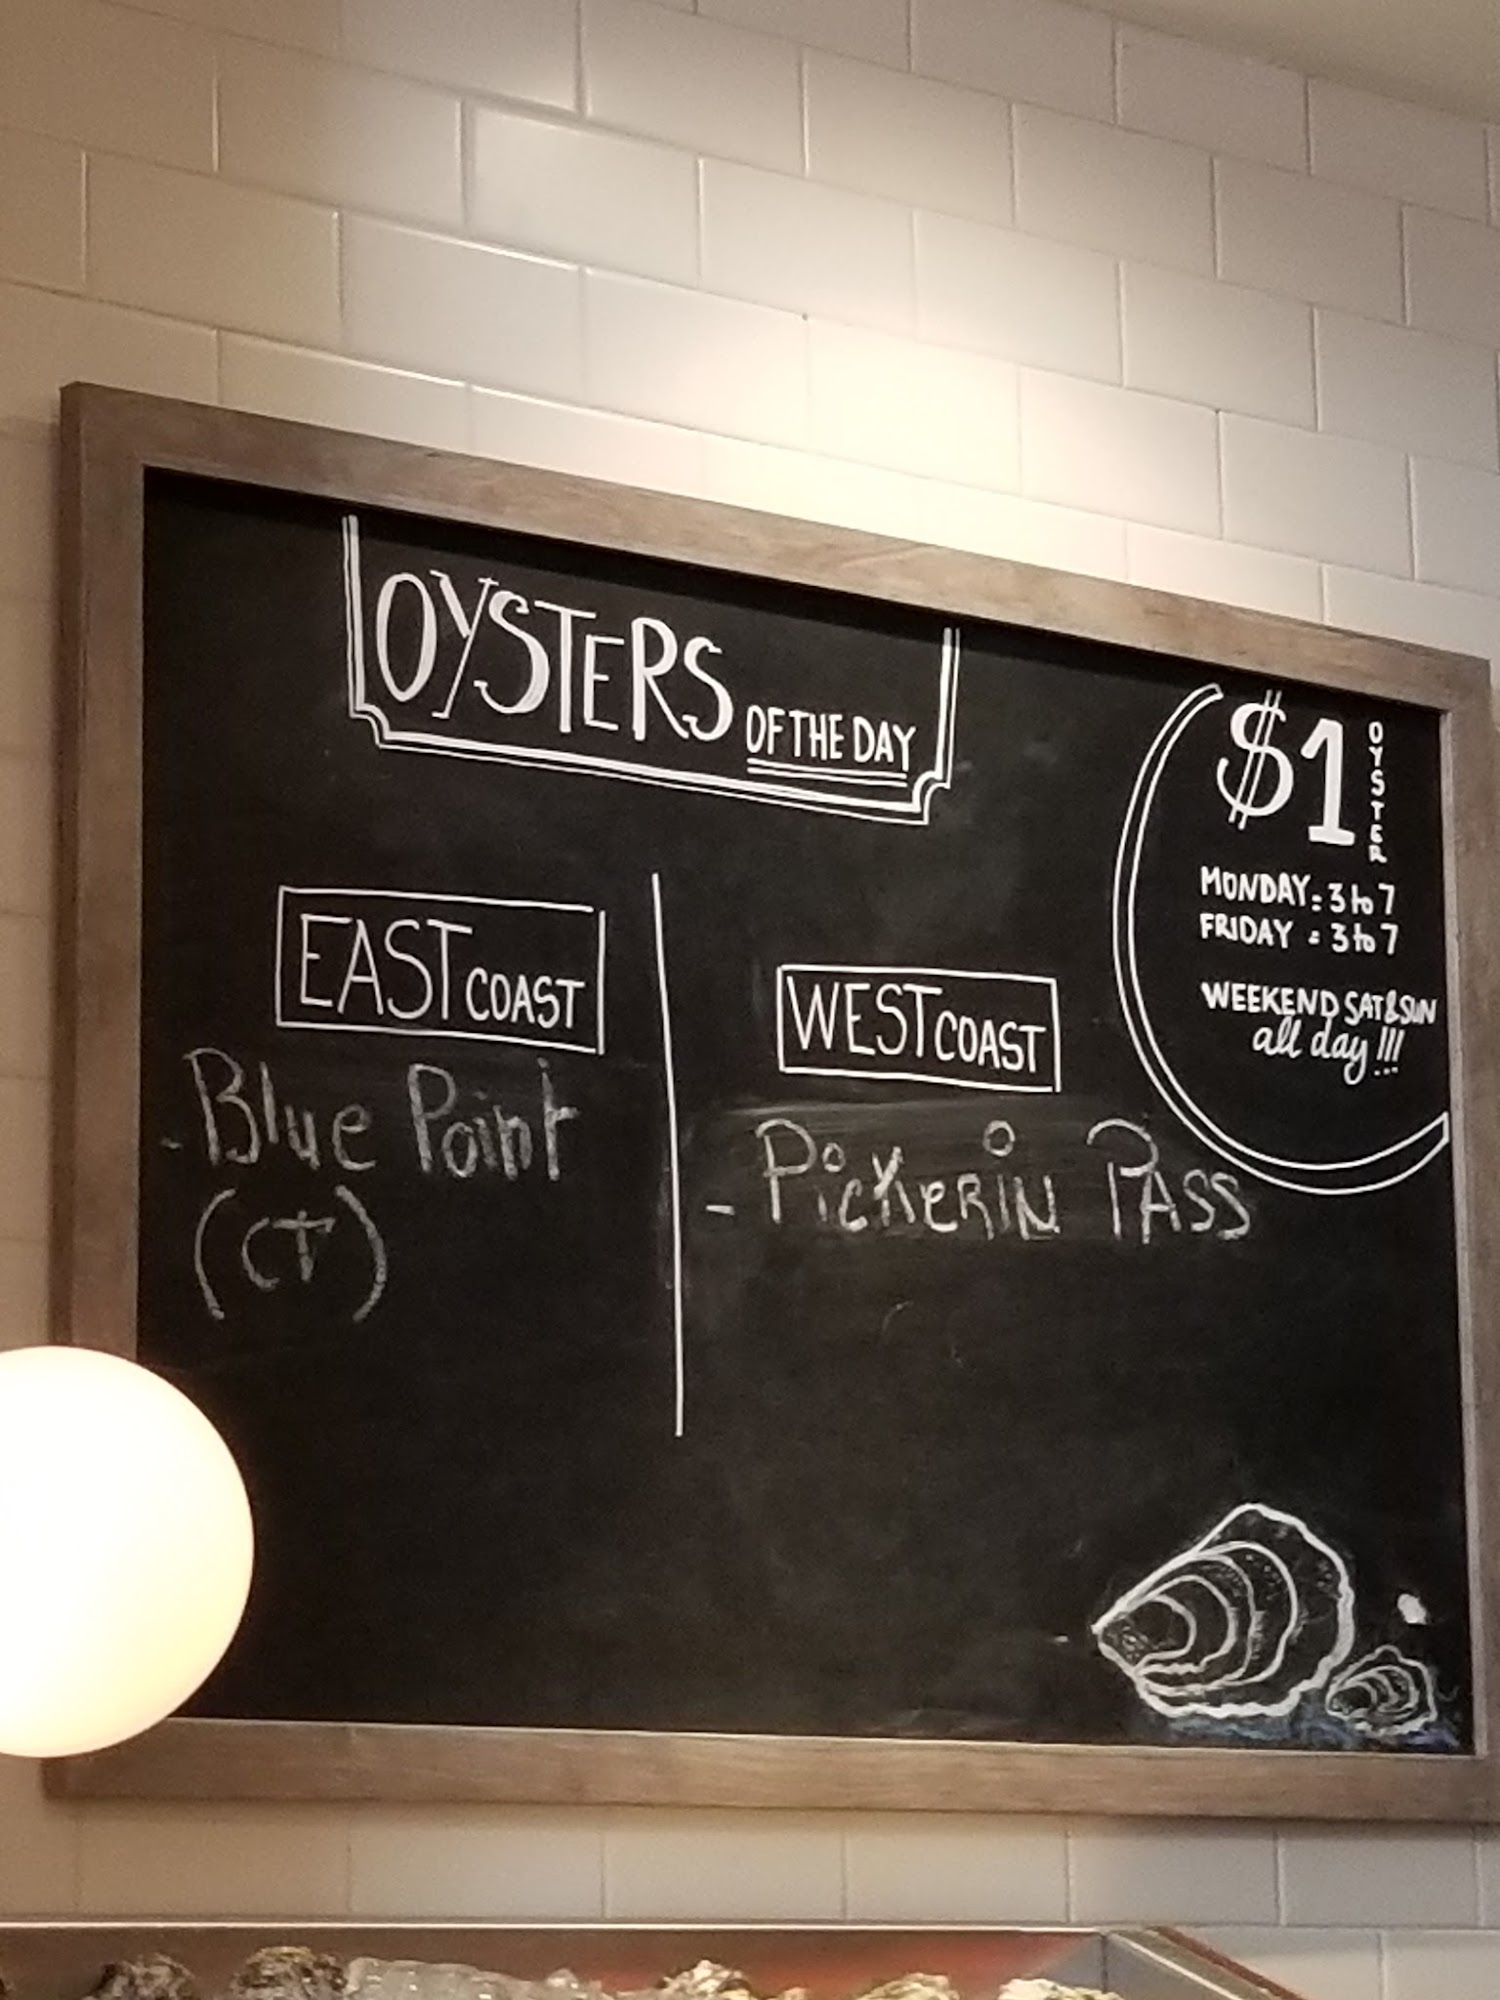 OYSTERS OF THE DAY
$1 OYSTER
MONDAY = 3 to 7
FRIDAY = 3 to 7
WEEKEND SAT & SUN
all day !!!
EAST COAST
- Blue Point
(CT)
WEST COAST
- PickeriN PASS